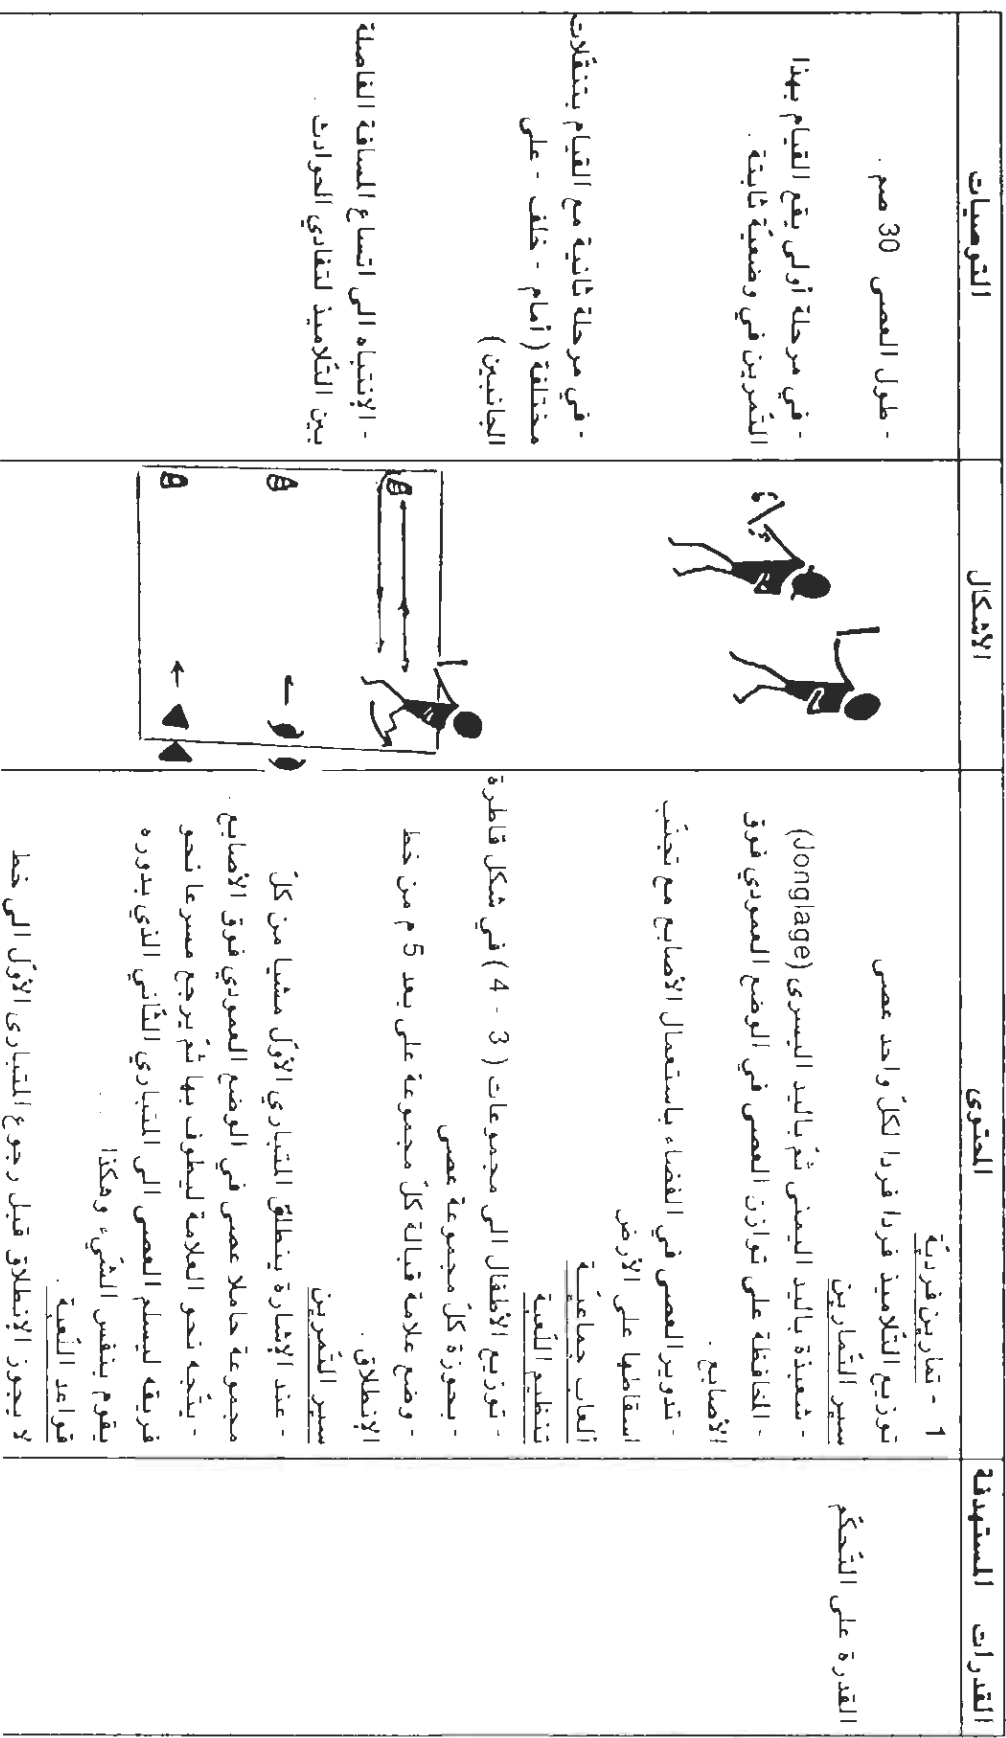 القدرات المستهدفة
المحتوى
الاشكال
التوصيات
القدرة على التّحكّم
1 - تمارين فرديّة
توزيع التّلاميذ فردا فردا لكلّ واحد عصى
سير التّمارين
- شعبذة باليد اليمنى ثمّ باليد اليسرى (Jonglage)
- المحافظة على توازن العصى في الوضع العمودي فوق
الأصابع .
- تدوير العصى في الفضاء باستعمال الأصابع مع تجنّب
إسقاطها على الأرض
ألعاب جماعيّة
تنظيم اللّعبة
- توزيع الأطفال الى مجموعات ( 3 - 4 ) في شكل قاطرة
- بحوزة كلّ مجموعة عصى
- وضع علامة قبالة كلّ مجموعة على بعد 5 م من خط
الإنطلاق .
سير التّمرين
- عند الإشارة ينطلق المتباري الأوّل مشيا من كلّ
مجموعة حاملا عصى في الوضع العمودي فوق الأصابع .
- يتّجه نحو العلامة ليطوف بها ثمّ يرجع مسرعا نحو
فريقه ليسلم العصى الى المتباري الثّاني الذي بدوره
يقوم بنفس الشّيء وهكذا
قواعد اللّعبة .
لا يجوز الإنطلاق قبل رجوع المتبارى الأوّل الى خط
- طول العصى 30 صم .
- في مرحلة أولى يقع القيام بهذا
التّمرين في وضعيّة ثابتة .
- في مرحلة ثانية مع القيام بتنقّلات
مختلفة ( أمام - خلف - على
الجانبين )
- الإنتباه الى اتساع المسافة الفاصلة
بين التّلاميذ لتفادي الحوادث .